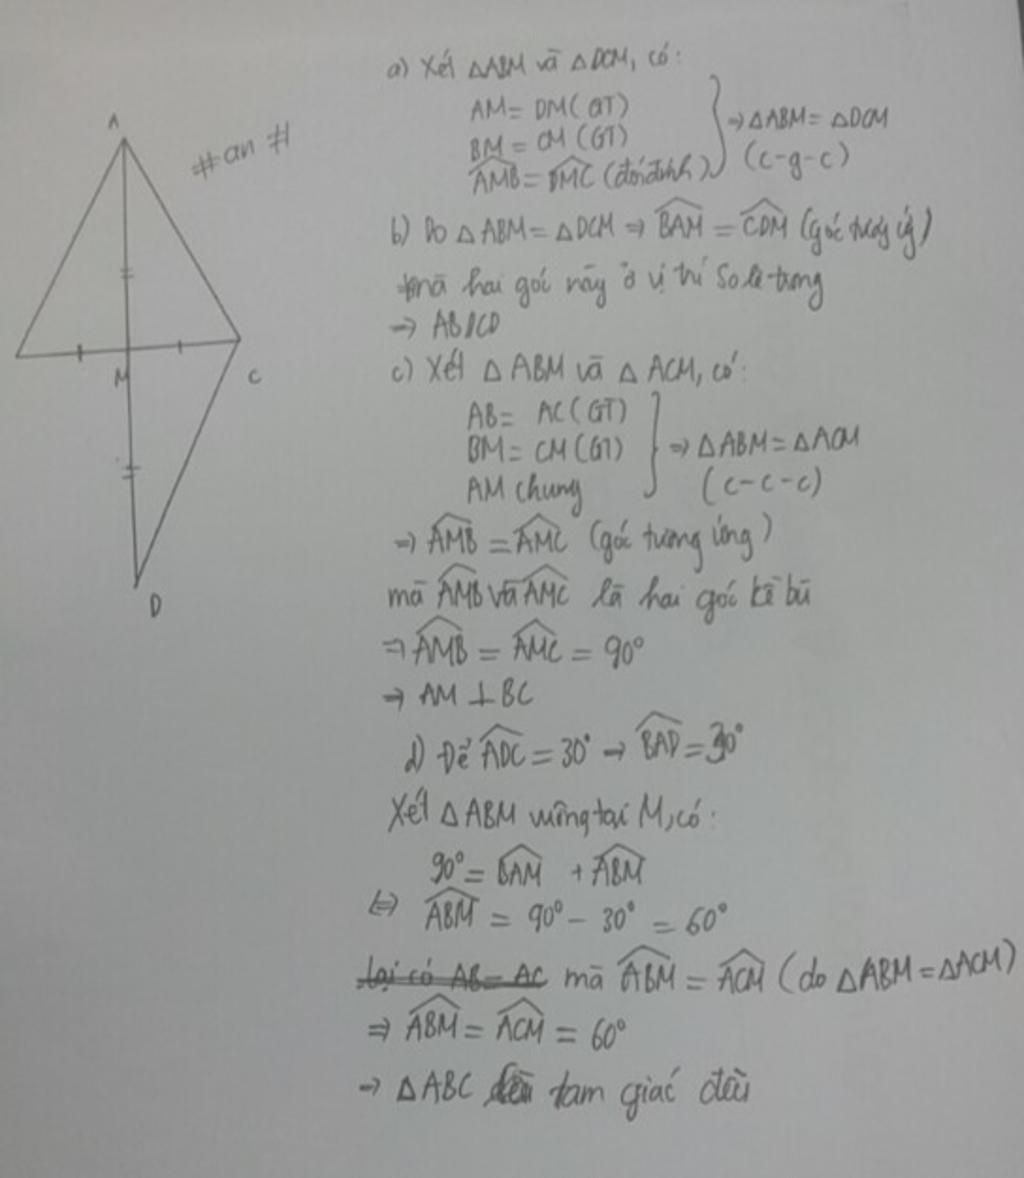 A
#an #
M
C
D
a) Xét △ABM và △DCM, có:
AM = DM (GT)
BM = CM (GT)
AMB = DMC (đối đỉnh)
⇒ △ABM = △DCM
(c-g-c)
b) Do △ABM = △DCM ⇒ BAM = CDM (góc tương ứng)
mà hai góc này ở vị trí so le trong
→ AB//CD
c) Xét △ABM và △ACM, có:
AB = AC (GT)
BM = CM (GT)
AM chung
⇒ △ABM = △ACM
(c-c-c)
⇒ AMB = AMC (góc tương ứng)
mà AMB và AMC là hai góc kề bù
⇒ AMB = AMC = 90°
→ AM ⊥ BC
d) Để ADC = 30° → BAD = 30°
Xét △ABM vuông tại M, có:
90° = BAM + ABM
⇔ ABM = 90° - 30° = 60°
lại có AB = AC mà ABM = ACM (do △ABM = △ACM)
⇒ ABM = ACM = 60°
→ △ABC tam giác đều